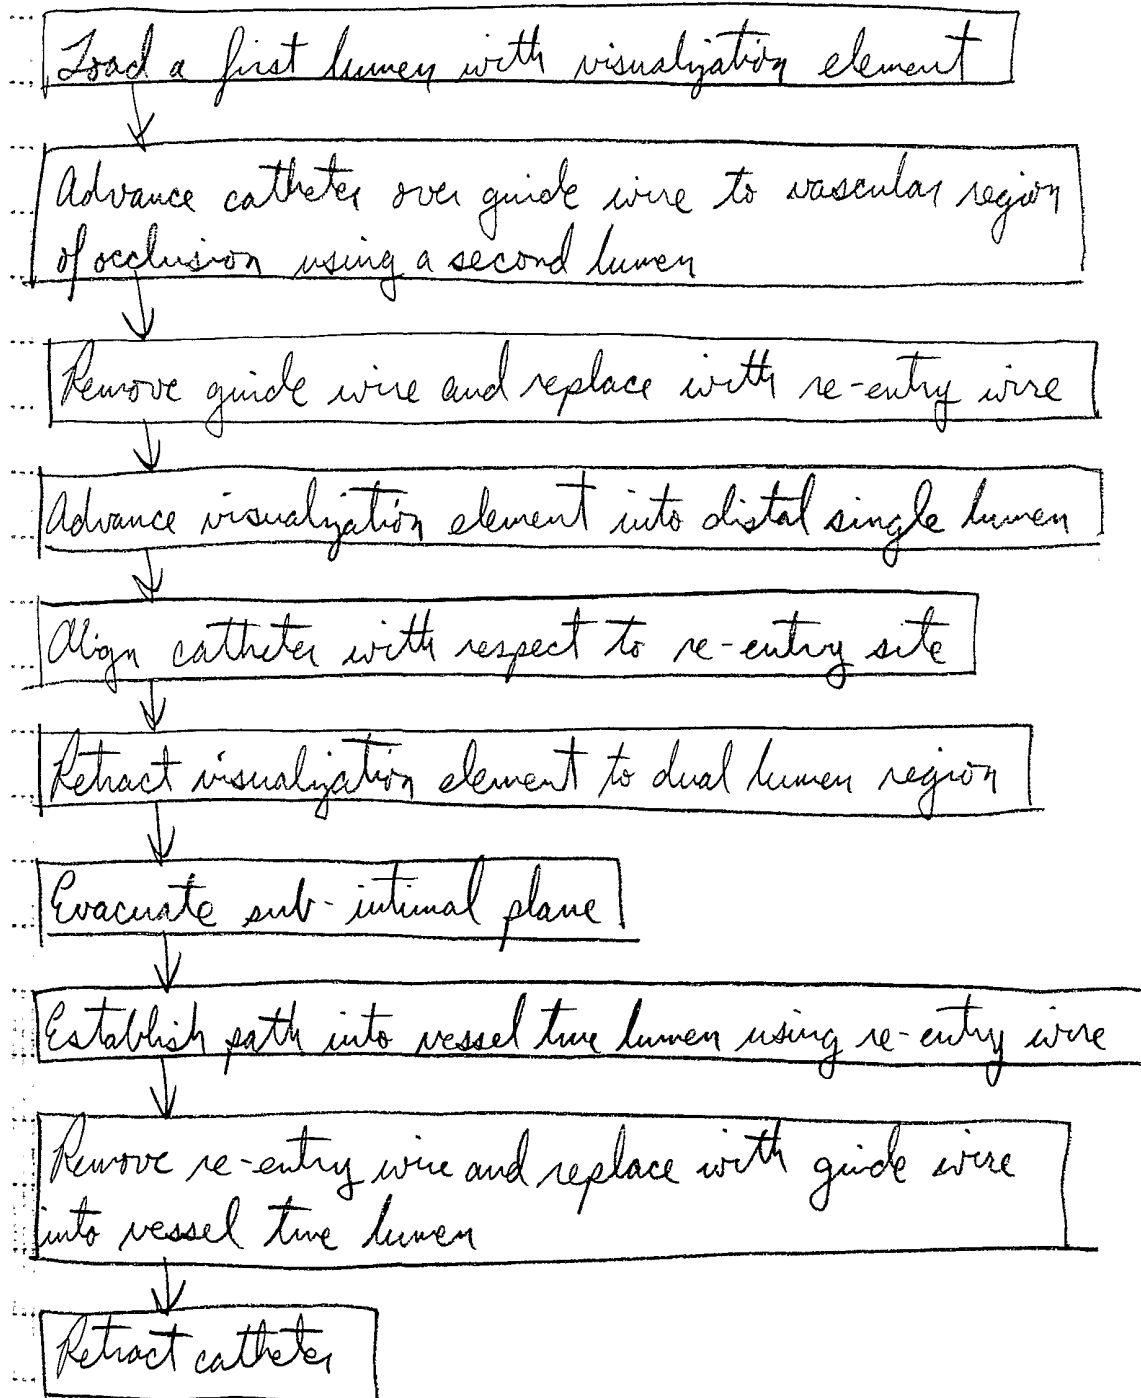 Load a first lumen with visualization element
Advance catheter over guide wire to vascular region
of occlusion using a second lumen
Remove guide wire and replace with re-entry wire
Advance visualization element into distal single lumen
Align catheter with respect to re-entry site
Retract visualization element to dual lumen region
Evacuate sub-intimal plane
Establish path into vessel true lumen using re-entry wire
Remove re-entry wire and replace with guide wire
into vessel true lumen
Retract catheter